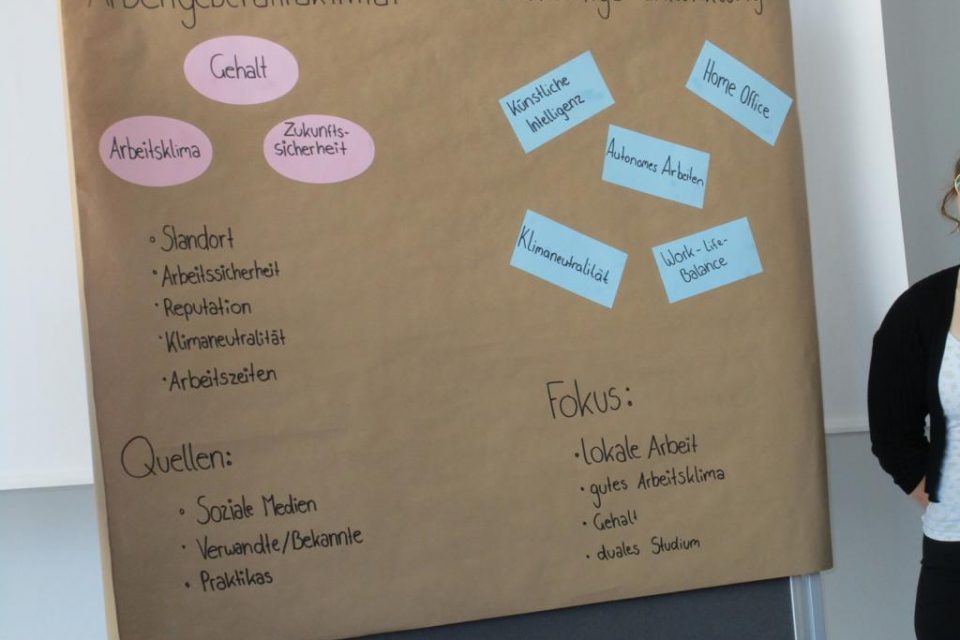 Arbeitgeberattraktivität
Gehalt
Arbeitsklima
Zukunfts-
sicherheit
Standort
Arbeitssicherheit
Reputation
Klimaneutralität
Arbeitszeiten
Quellen:
Soziale Medien
Verwandte/Bekannte
Praktikas
Künstliche
Intelligenz
Home Office
Autonomes Arbeiten
Klimaneutralität
Work-Life-
Balance
Fokus:
lokale Arbeit
gutes Arbeitsklima
Gehalt
duales Studium